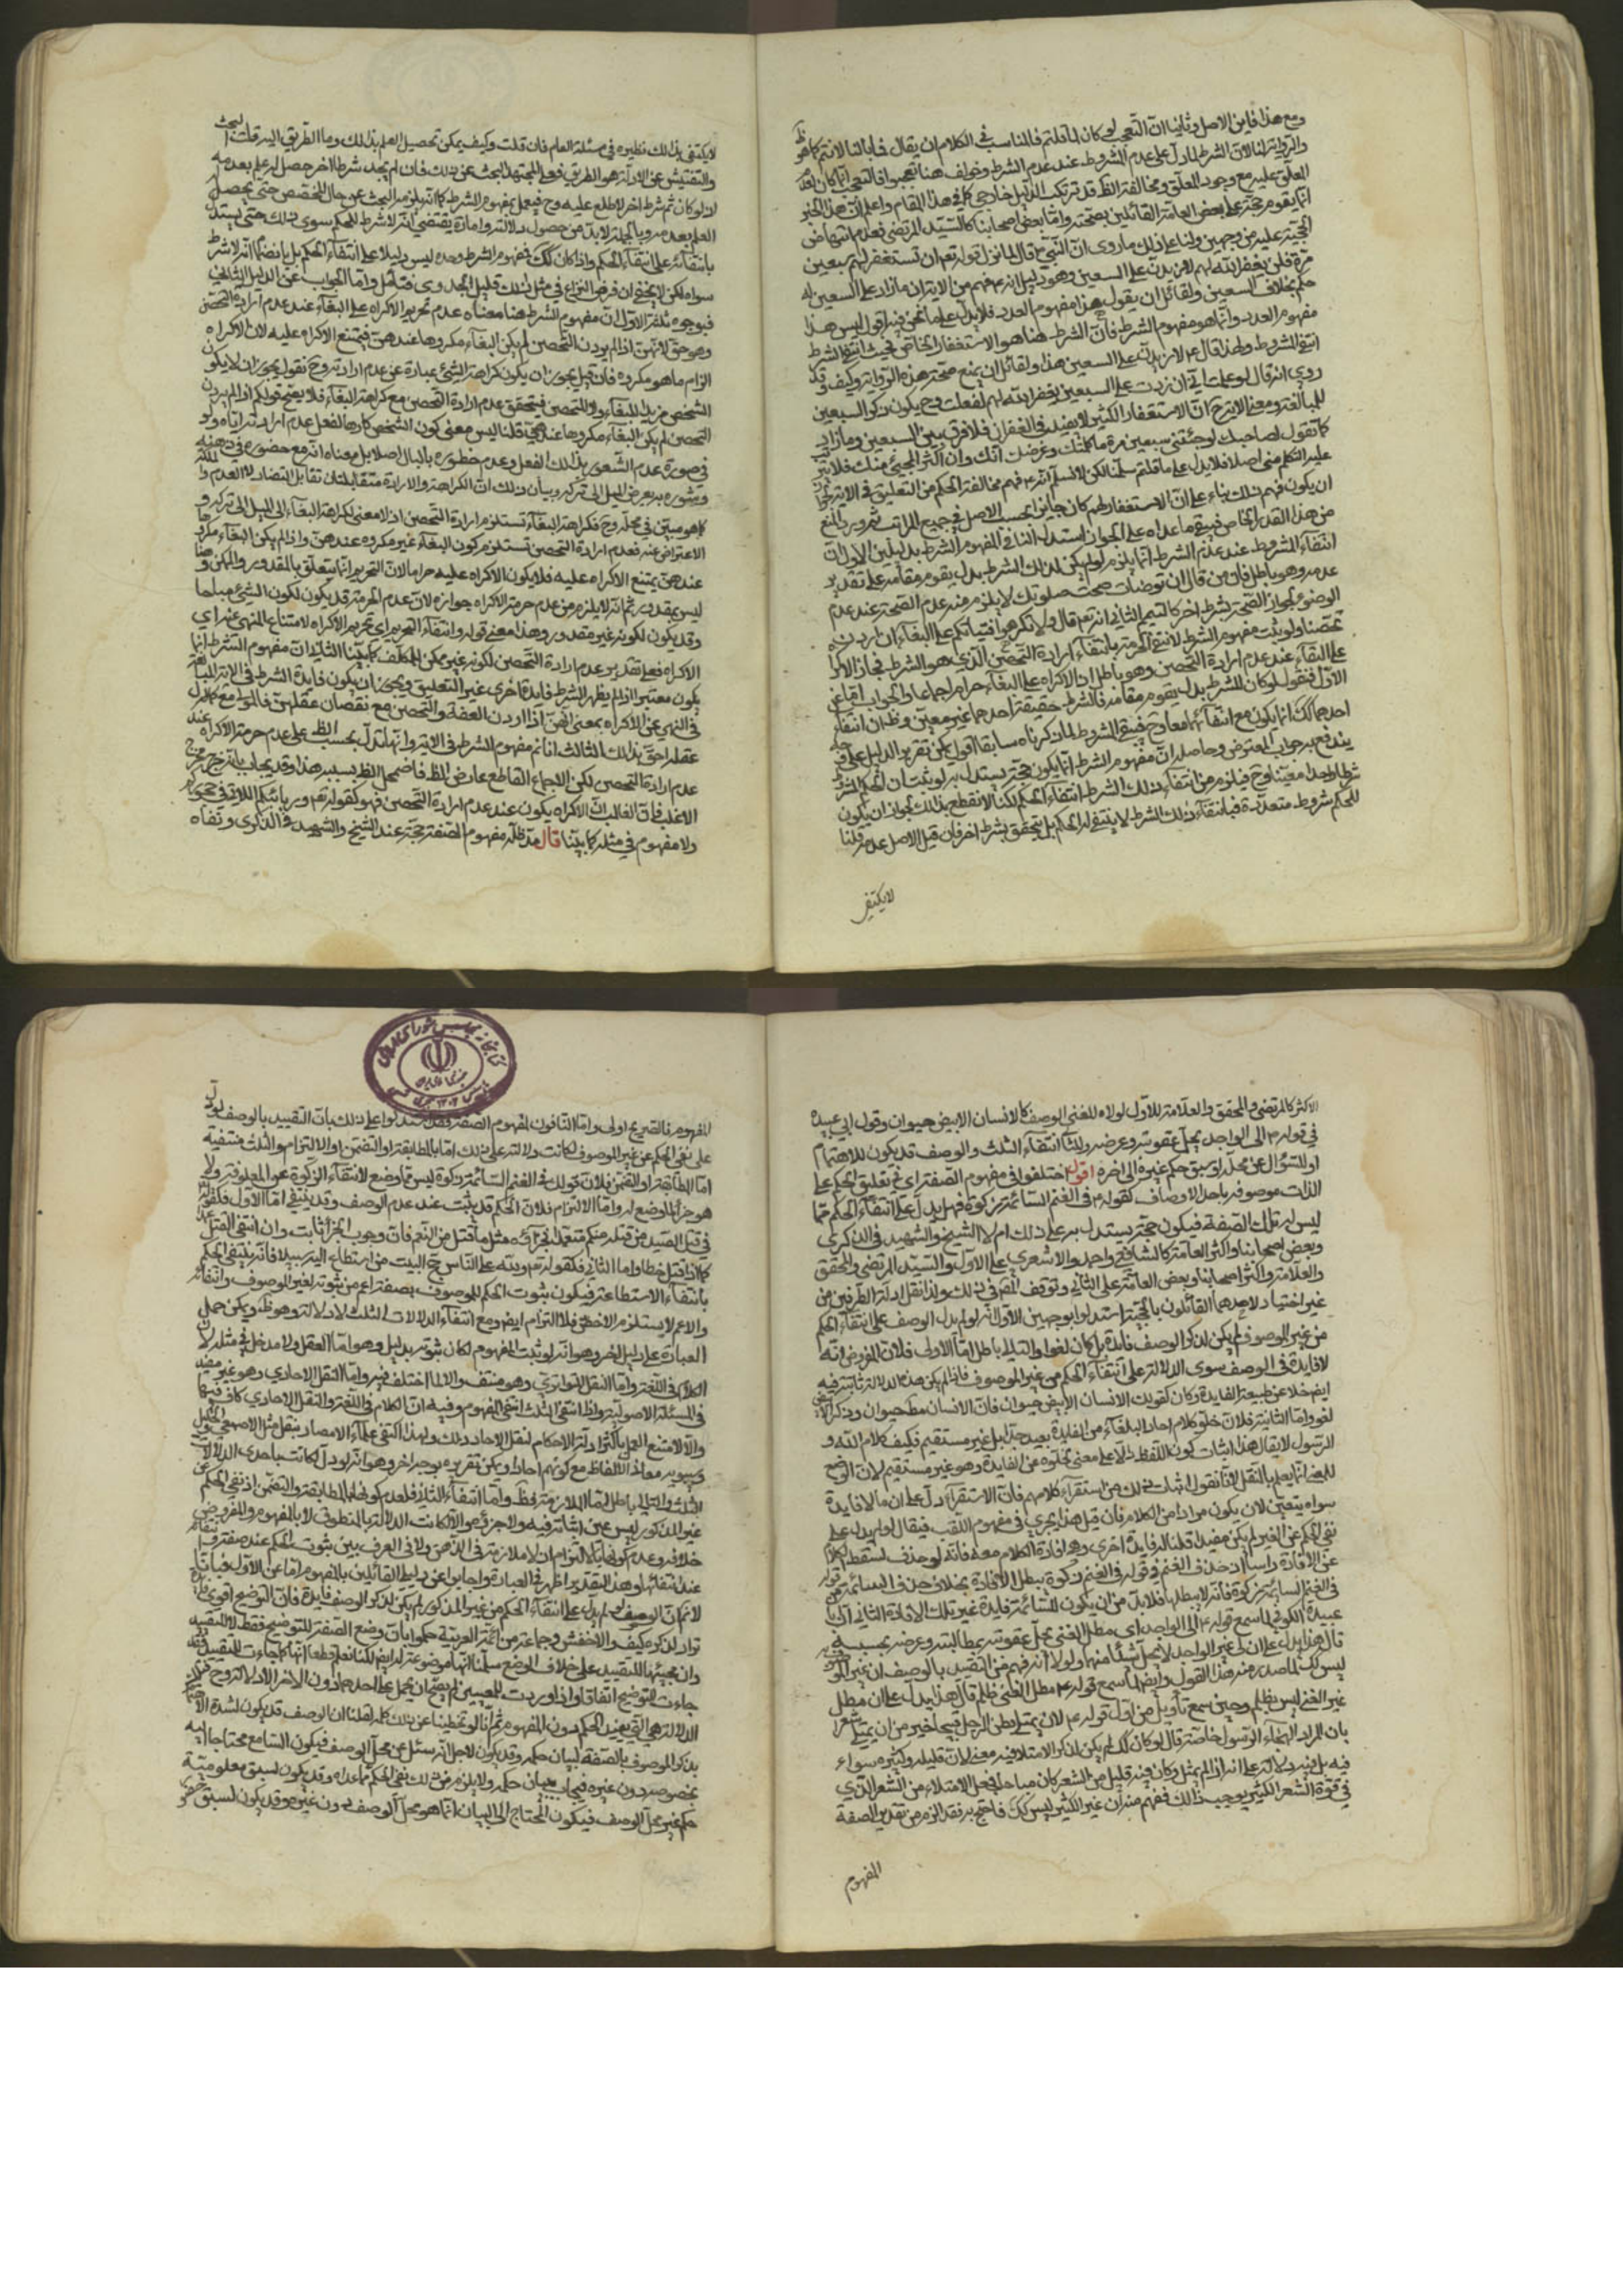 ومع هذا فاين الاصل وثانيا ان التعجب لو كان لما قلتم فالمناسب في الكلام ان يقال فما بالنا لا نتم كما هو
والرواية لنا لان الشرط لما دل على عدم المشروط عند عدم الشرط وخولف هنا تعجبوا فالتعجب انما كان لعدم
المعلق عليه مع وجود المعلق ومخالفة الظ قد ترتكب لدليل خارجي كما في هذا المقام واعلم ان هذا الخبر
انما يقوم حجة على بعض العامة القائلين بصحته واما بعض اصحابنا كالسيد المرتضى فعدم انتهاض
الحجية عليه من وجهين ولنا على ذلك ما روى ان النبي ص قال لما نزل قوله تعم ان تستغفر لهم سبعين
مرة فلن يغفر الله لهم لازيدن على السبعين وهو دليل انه ع فهم من الاية ان ما زاد على السبعين له
حكم بخلاف السبعين ولقائل ان يقول هذا مفهوم العدد فلا يدل على ما نحن فيه اقول ليس هذا
مفهوم العدد وانما هو مفهوم الشرط فان الشرط هنا هو الاستغفار الخاص فحيث انتفى الشرط
انتفى المشروط ولهذا قال ع لازيدن على السبعين هذا ولقائل ان يمنع صحة هذه الرواية وكيف وقد
روي انه قال لو علمت اني ان زدت على السبعين يغفر الله لهم لفعلت وح يكون ذكر السبعين
للمبالغة ومعنى الاية ح ان الاستغفار الكثير لا يفيد في الغفران فلا فرق بين السبعين وما زاد
كما تقول لصاحبك لو جئتني سبعين مرة ما كلمتك وغرضك انك وان اكثر المجيئ منك فلا
عليه التكلم مني اصلا فلا يدل على ما قلتم سلمنا لكن لا نسلم انه ع فهم مخالفة الحكم من التعليق في الاية
ان يكون فهم ذلك بناء على ان الاستغفار لهم كان جايزا بحسب الاصل في جميع المراتب ثم ورد المنع
من هذا القدر الخاص فبقي ما عداه على الجواز استدل النافي لمفهوم الشرط بدليلين الاول ان
انتفاء المشروط عند عدم الشرط انما يلزم لو لم يكن لذلك الشرط بدل يقوم مقامه على تقدير
عدمه وهو باطل فان من قال ان توضات صحت صلوتك لا يلزم منه عدم الصحة عند عدم
الوضوء لجواز الصحة بشرط اخر كالتيمم الثاني انه تعم قال ولا تكرهوا فتياتكم على البغاء ان اردن
تحصنا ولو ثبت مفهوم الشرط لانتفى الحرمة بانتفاء ارادة التحصن الذي هو الشرط فجاز الاكراه
على البغاء عند عدم ارادة التحصن وهو باطل اذ الاكراه على البغاء حرام اجماعا والجواب اما عن
الاول فنقول لو كان للشرط بدل يقوم مقامه فالشرط حقيقة احدهما غير معين وظ ان انتفاء
احدهما كك انما يكون مع انتفائهما معا وح فينتفي المشروط لما ذكرناه سابقا اقول يمكن تقرير الدليل على وجه
يندفع به جواب المعترض وحاصله ان مفهوم الشرط انما يكون حجة يستدل به لو ثبت ان للحكم المشروط
شرطا واحدا معينا وح فيلزم من انتفاء ذلك الشرط انتفاء الحكم لكنا لا نقطع بذلك لجواز ان يكون
للحكم شروط متعددة فبانتفاء ذلك الشرط لا ينتفي الحكم بل يتحقق بشرط اخر فان قيل الاصل عدمه قلنا
لا يكتفى
لا يكتفى بذلك نظيره في مسئلة العام فان قلت وكيف يمكن تحصيل العلم بذلك وما الطريق اليه قلت البحث
والتفتيش عن الادلة هو الطريق فعلى المجتهد البحث عن ذلك فان لم يجد شرطا اخر حصل له علم بعدمه
اذ لو كان ثم شرط اخر لاطلع عليه وح فيعمل بمفهوم الشرط كما انه يلزمه البحث عن حال المخصص حتى يحصل
العلم بعدمه وبالجملة لا بد من حصول دلالة وامارة يقتضي انه لا شرط للحكم سوى ذلك حتى يستدل
بانتفائه على انتفاء الحكم واذا كان كك فمفهوم الشرط وحده ليس دليلا على انتفاء الحكم بل بانضمام انه لا شرط
سواه لكن لا يخفى ان فرض النزاع في مثل ذلك قليل الجدوى فتامل واما الجواب عن الدليل الثاني
فبوجوه ثلثة الاول ان مفهوم الشرط هنا معناه عدم تحريم الاكراه على البغاء عند عدم ارادة التحصن
وهو حق لانهن اذا لم يردن التحصن لم يكن البغاء مكروها عندهن فيمتنع الاكراه عليه لان الاكراه
الزام ما هو مكروه فان قيل يجوز ان يكون كراهة الشيئ عبارة عن عدم ارادته وح نقول يجوز ان لا يكون
الشخص مريدا للبغاء ولا للتحصن فيتحقق عدم ارادة التحصن مع كراهة البغاء فلا يصح قولكم اذا لم يردن
التحصن لم يكن البغاء مكروها عندهن قلنا ليس معنى كون الشخص كارها لفعل عدم ارادته اياه ولو
في صورة عدم الشعور بذلك الفعل وعدم خطوره بالبال اصلا بل معناه انه مع حضوره في ذهنه
وشعوره به يعرض الميل الى تركه وبيان ذلك ان الكراهة والارادة متقابلتان تقابل التضاد لا العدم والملكة
كما هو مبين في محله وح فكراهة البغاء تستلزم ارادة التحصن اذ لا معنى لكراهة البغاء الا الميل الى تركه و
الاعتراض عنه فعدم ارادة التحصن تستلزم كون البغاء غير مكروه عندهن واذا لم يكن البغاء مكروها
عندهن يمتنع الاكراه عليه فلا يكون الاكراه عليه حراما لان التحريم انما يتعلق بالمقدور والممكن وهنا
ليس بمقدور ثم انه لا يلزم من عدم حرمة الاكراه جوازه لان عدم الحرمة قد يكون لكون الشيئ مباحا
وقد يكون لكونه غير مقدور وهذا معنى قوله وانتفاء التحريم اي تحريم الاكراه لامتناع المنهي عنه اي
الاكراه فعلى تقدير عدم ارادة التحصن لكونه غير ممكن للمكلف كما بينا الثاني ان مفهوم الشرط انما
يكون معتبرا اذا لم يظهر للشرط فايدة اخرى غير التعليق ويجوز ان يكون فايدة الشرط في الاية المبالغة
في النهي عن الاكراه بمعنى انهن اذا اردن العفة والتحصن مع نقصان عقلهن فالمولى مع كمال
عقله احق بذلك الثالث انا لم مفهوم الشرط في الاية وانها تدل بحسب الظ على عدم حرمة الاكراه عند
عدم ارادة التحصن لكن الاجماع القاطع عارض الظ فاضمحل الظ بسببه هذا وقد يجاب بانه خرج مخرج
الاغلب فان الغالب ان الاكراه يكون عند عدم ارادة التحصن فهو كقوله تعم وربائبكم اللاتي في حجوركم
ولا مفهوم في مثله كما بينا قال مد ظله مفهوم الصفة حجة عند الشيخ والشهيد في الذكرى ونفاه
الاكثر كالمرتضى والمحقق والعلامة للاول لولاه للغى الوصف كالانسان الابيض حيوان وقول ابي عبيدة
في قوله ع لي الواجد يحل عقوبته وعرضه وللثاني انتفاء الثلث والوصف قد يكون للاهتمام
او للسؤال عن محله او سبق حكم غيره الى اخره اقول اختلفوا في مفهوم الصفة اي في تعليق الحكم على
الذات موصوفة باحد الاوصاف كقوله ع في الغنم السائمة زكوة فهل يدل على انتفاء الحكم عما
ليس له تلك الصفة فيكون حجة يستدل به على ذلك ام لا الشيخ والشهيد في الذكرى
وبعض اصحابنا واكثر العامة كالشافعي واحمد والاشعري على الاول والسيد المرتضى والمحقق
والعلامة واكثر اصحابنا وبعض العامة على الثاني وتوقف المص في ذلك ولذا نقل ادلة الطرفين من
غير اختيار لاحدهما القائلون بالحجية استدلوا بوجهين الاول انه لو لم يدل الوصف على انتفاء الحكم
من غير الموصوف لم يكن لذكر الوصف فائدة بل كان لغوا والتالي باطل اما الاولى فلان المفروض انه
لا فايدة في الوصف سوى الدلالة على انتفاء الحكم من غير الموصوف فاذا لم يكن هذه الدلالة ثابتة فيه
ايضم خلا عن طبيعة الفايدة وكان كقولك الانسان الابيض حيوان فان الانسان مط حيوان وذكر الابيض
لغو واما الثانية فلان خلو كلام احاد البلغاء من الفايدة بعيد جدا بل غير مستقيم فكيف كلام الله و
الرسول لا يقال هذا اثبات كون اللفظ دالا على معنى لخلوه عن الفايدة وهو غير مستقيم لان الوضع
للمعنى انما يعلم بالنقل لانا نقول اثبات ذلك من استقراء كلامهم فان الاستقراء دل على ان ما لا فايدة
سواه يتعين لان يكون مرادا من الكلام فان قيل هذا يجري في مفهوم اللقب فيقال لو لم يدل على
نفي الحكم عن الغير لم يكن مفيدا قلنا له فايدة اخرى وهو افادة الكلام معه فانه لو حذف لسقط الكلام
عن الافادة راسا اذ حذف الغنم في قوله في الغنم زكوة يبطل الافادة بخلاف حذف السائمة من قوله
في الغنم السائمة زكوة فانه لا يبطلها فلا بد من ان يكون للسائمة فايدة غير تلك الافادة الثاني ان ابا
عبيدة الكوفي لما سمع قوله ع لي الواجد اي مطل الغني يحل عقوبته بمطالبته وعرضه بحبسه
قال هذا يدل على ان لي غير الواجد لا يحل شيئا منهما ولولا انه فهم من التقييد بالوصف ان غير الموصوف
ليس كك لما صدر منه هذا القول وايضا لما سمع قوله ع مطل الغني ظلم قال هذا يدل على ان مطل
غير الغني ليس بظلم وحين سمع تاويل من اول قوله ع لان يمتلئ بطن الرجل قيحا خير من ان يمتلئ شعرا
بان المراد الهجاء الرسول خاصة قال لو كان كك لم يكن لذكر الامتلاء فيه معنى لان قليله وكثيره سواء
فيه بل فيه دلالة على انه اذا لم يمتل وكان فيه قليل من الشعر كان مباحا فجعل الامتلاء من الشعر الذي
في قوة الشعر الكثير يوجب ذلك ففهم منه ان غير الكثير ليس كك فاحتج به فقد الزم من تقدير الصفة
المفهوم
المفهوم فالتصريح اولى واما النافون لمفهوم الصفة فقد استدلوا على ذلك بان التقييد بالوصف لو دل
على نفي الحكم عن غير الموصوف لكانت دلالته على ذلك اما بالمطابقة او التضمن او الالتزام والثلث منتفية
اما المطابقة او التضمن فلان قولك في الغنم السائمة زكوة ليس موضوع لانتفاء الزكوة عن المعلوفة ولا
هو جزء الموضوع له واما الالتزام فلان الحكم قد يثبت عند عدم الوصف وقد ينتفي اما الاول فكقوله تعم
في قتل الصيد من قتله منكم متعمدا فجزاؤه مثل ما قتل من النعم فان وجوب الجزا ثابت وان انتفى القتل عمدا
كما اذا قتل خطا واما الثاني فكقوله تعم ولله على الناس حج البيت من استطاع اليه سبيلا فانه ينتفي الحكم
بانتفاء الاستطاعة فيكون ثبوت الحكم للموصوف بصفة اعم من ثبوته لغير الموصوف وانتفائه
والاعم لا يستلزم الاخص فلا التزام ايضا ومع انتفاء الدلالات الثلث لا دلالة وهو ظ ويمكن حمل
العبارة على دليل اخر وهو انه لو ثبت المفهوم لكان ثبوته بدليل وهو اما العقل ولا مدخل في مثله لان
الكلام في اللغة واما النقل التواتري وهو منتف والا لما اختلف فيه واما النقل الاحادي وهو غير مفيد
في المسئلة الاصولية واذا انتفى الثلث انتفى المفهوم وفيه ان الكلام في اللغة والنقل الاحادي كاف فيها
والا لامتنع العمل باكثر ادلة الاحكام لنقل الاحاد ذلك ولهذا اكتفى علماء الامصار بنقل مثل الاصمعي والخليل
وسيبويه معاني الالفاظ مع كونهم احادا ويمكن تقريره بوجه اخر وهو انه لو دل لكانت باحدى الدلالات
الثلث والتالي باطل اما الملازمة فظ واما انتفاء التالي فلعدم كونها بالمطابقة والتضمن اذ نفي الحكم عن
غير المذكور ليس عين اثباته فيه ولا جزئه والا لكانت الدلالة بالمنطوق لا بالمفهوم والمفروض
خلافه وعدم كونها بالالتزام اذ لا ملازمة في الذهن ولا في العرف بين ثبوت الحكم عند صفة وانتفائه
عند انتفائها وهذا التقدير اظهر في العبارة واجابوا عن دليل القائلين بالمفهوم اما عن الاول فبانا
لا نم ان الوصف لو لم يدل على انتفاء الحكم من غير المذكور لم يكن لذكر الوصف فايدة فان التوضيح اقوى
كيف والاخفش وجماعة من ائمة العربية حكموا بان وضع الصفة للتوضيح فقط لا للتقييد
وان مجيئها للتقييد على خلاف الوضع سلمنا انها موضوعة له ايضا لكنا نعلم قطعا انها كما جاءت للتقييد فقد
جاءت للتوضيح اتفاقا واذا وردت للمعنيين لم يصح ان يحمل على احدهما دون الاخر الا لدلالة
الدلالة هي التي يفيد الحكم دون المفهوم ثم انا لو تخطينا عن ذلك كله لقلنا ان الوصف قد يكون لشدة الاهتمام
بذكر الموصوف بالصفة لبيان حكمه وقد يكون لاجل انه سئل عن محل الوصف فيكون السامع محتاجا اليه
بخصوصه دون غيره فيجاب ببيان حكمه ولا يلزم من ذلك نفي الحكم عما عداه وقد يكون لسبق معلومية
حكم غير محل الوصف فيكون المحتاج الى البيان انما هو محل الوصف دون غيره وقد يكون لسبق